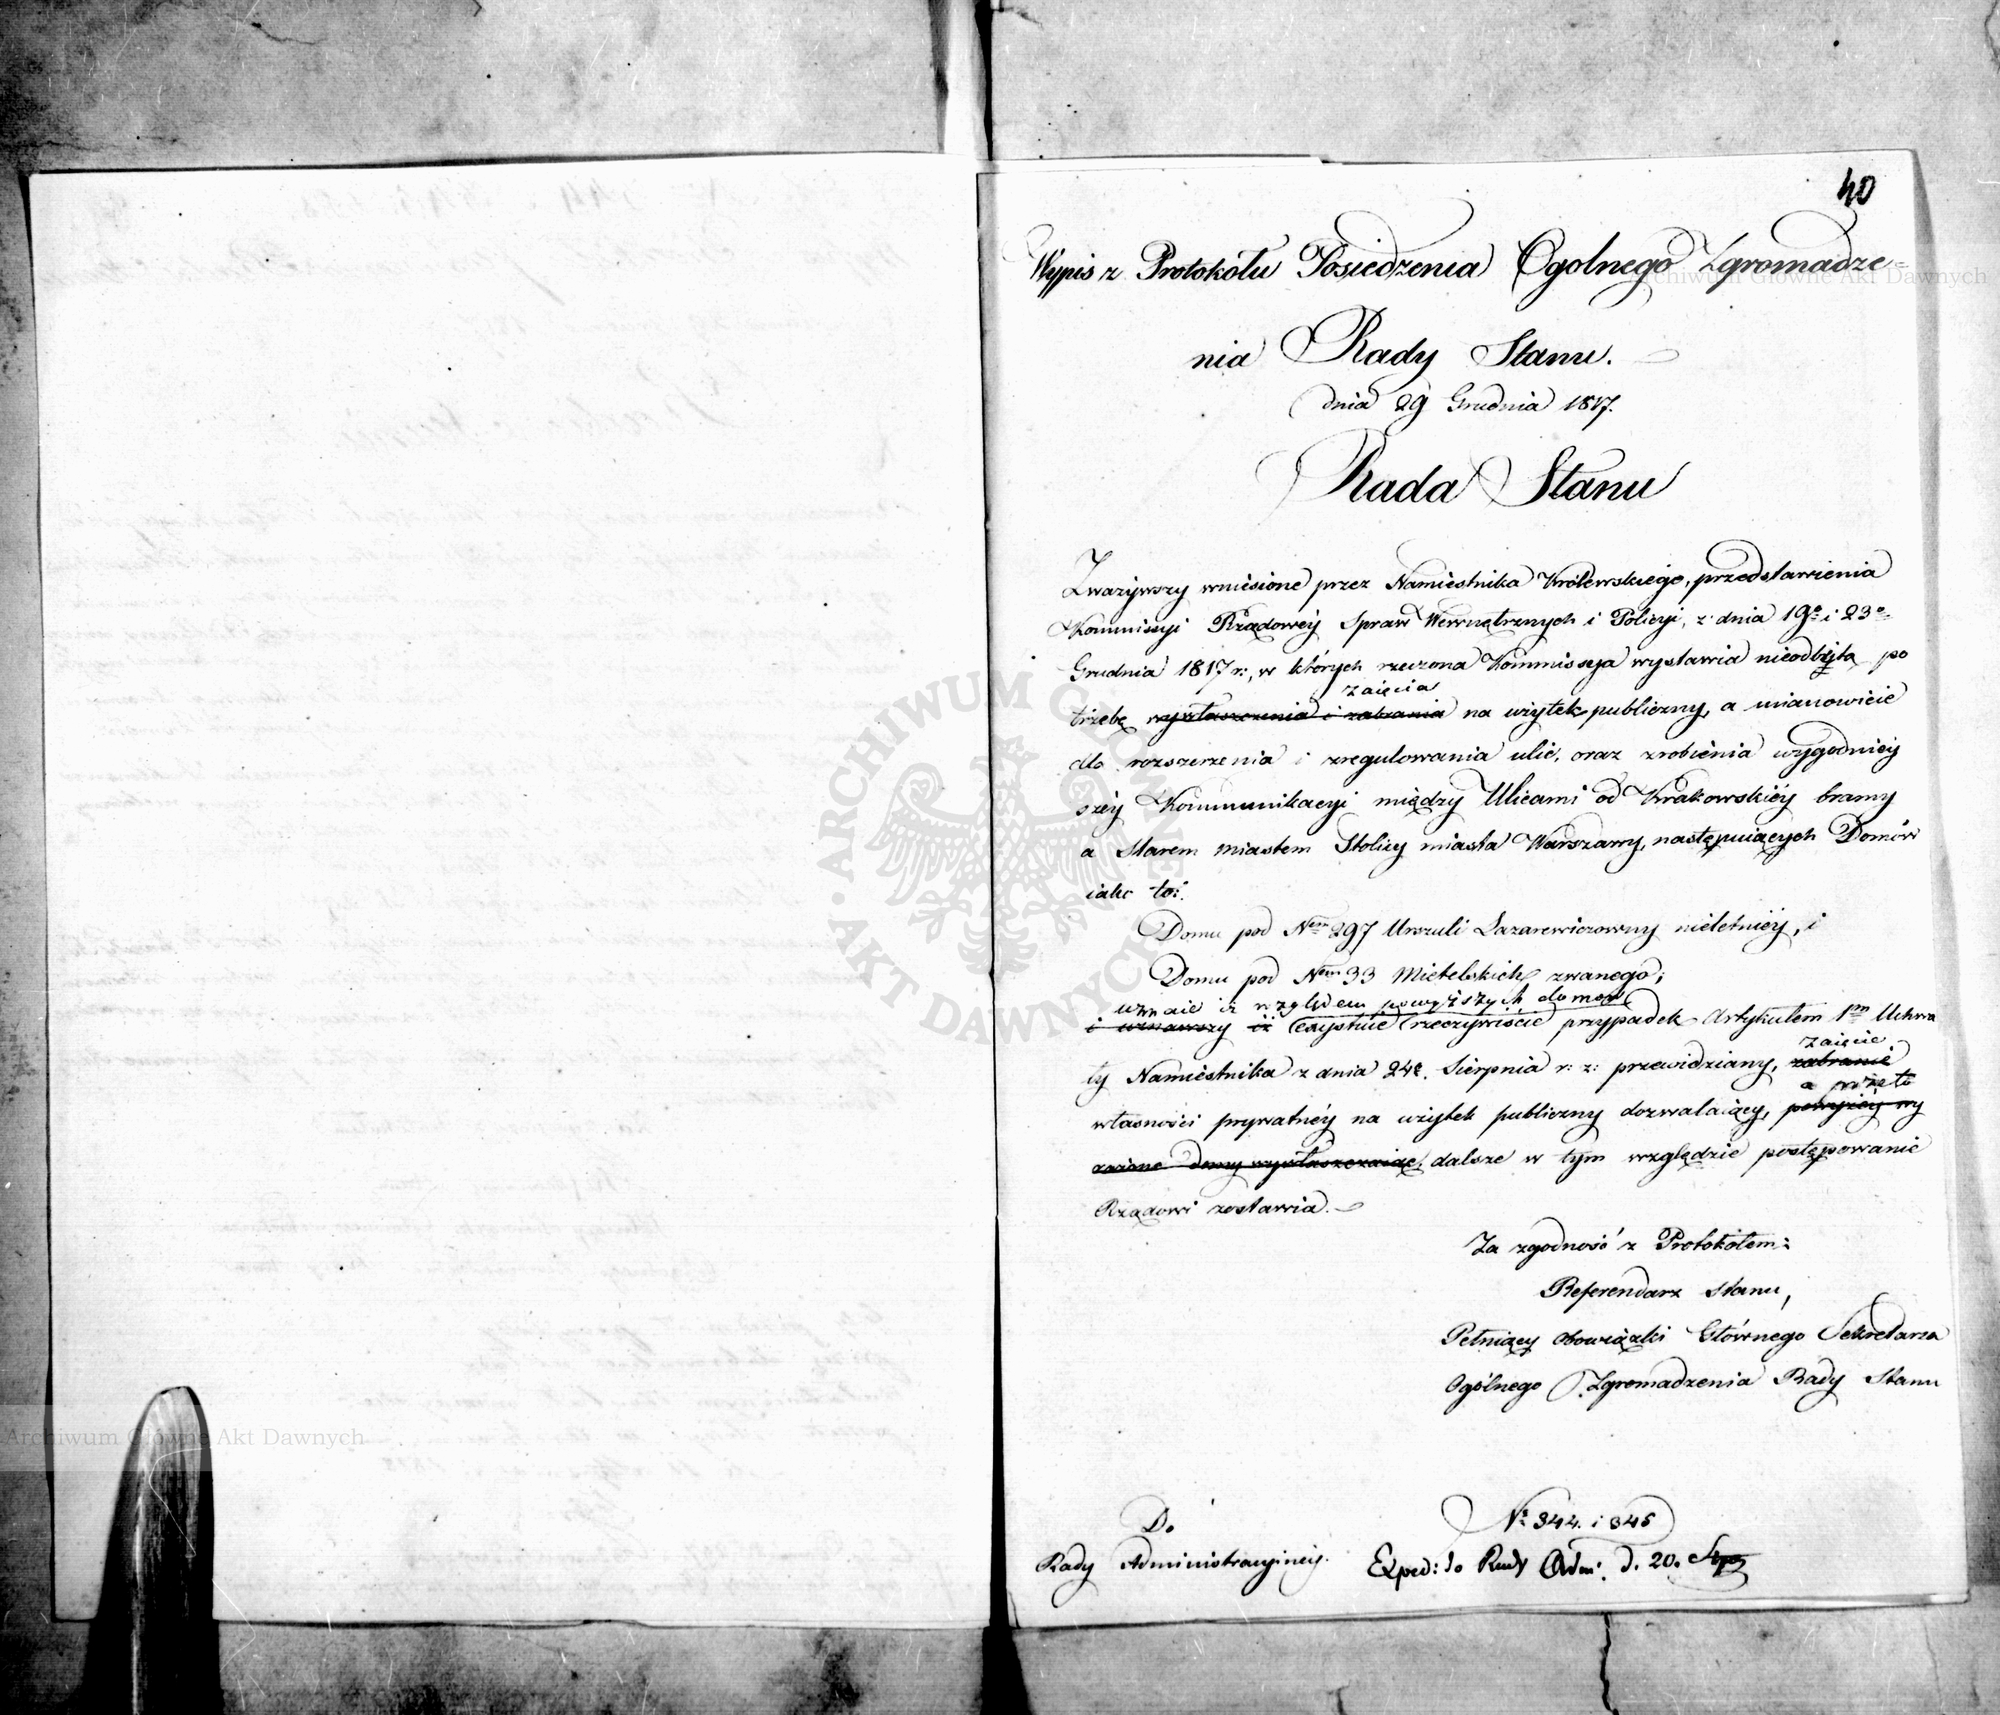 40
Wypis z Protokółu Posiedzenia Ogolnego Zgromadze=
nia Rady Stanu.
dnia 29 Grudnia 1817.
Rada Stanu
Zważywszy wniesione przez Namiestnika Królewskiego, przedstawienia
Kommissyi Rządowéy Spraw Wewnętrznych i Policyi, z dnia 19° i 23°
Grudnia 1817 r:, w których rzeczona Kommissya wystawia nieodbytą po
zaięcia
trzebę wywłaszczenia i zabrania na użytek publiczny, a mianowicie
dla rozszerzenia i zregulowania ulic, oraz zrobienia wygodniéy
széy Kommunikacyi między Ulicami od Krakowskiéy bramy
a Starem miastem Stolicy miasta Warszawy, następuiących Domów
iako to:
Domu pod Nem 297 Urszuli Łazarewiczowny nieletniéy, i
Domu pod Nem 33 Mietelskich zwanego;
uznaie iż względem powyższych domów
i uznawszy iż exystuie rzeczywiście przypadek Artykułem 1m Uchwa
zaięcie
ły Namiestnika z dnia 24e. Sierpnia r: z: przewidziany, zabranie
a przeto
własności prywatnéy na użytek publiczny dozwalaiący, powyżéy wy
rażone domy wywłaszczaiąc, dalsze w tym względzie postępowanie
Rządowi zostawia.
Za zgodność z Protokółem:
Referendarz Stanu,
Pełniący obowiązki Głównego Sekretarza
Ogólnego Zgromadzenia Rady Stanu
Do
Rady Administracyinéy.
No 344. i 345
Exped: do Rady Adm: d. 20.
Archiwum Główne Akt Dawnych
Archiwum Główne Akt Dawnych
ARCHIWUM GŁÓWNE AKT DAWNYCH